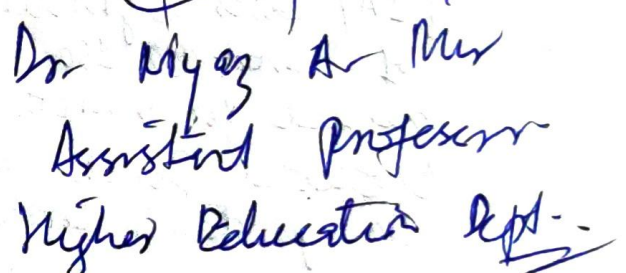 Dr Niyaz Ar Mir
Assistant Professor
Higher Education Dept.